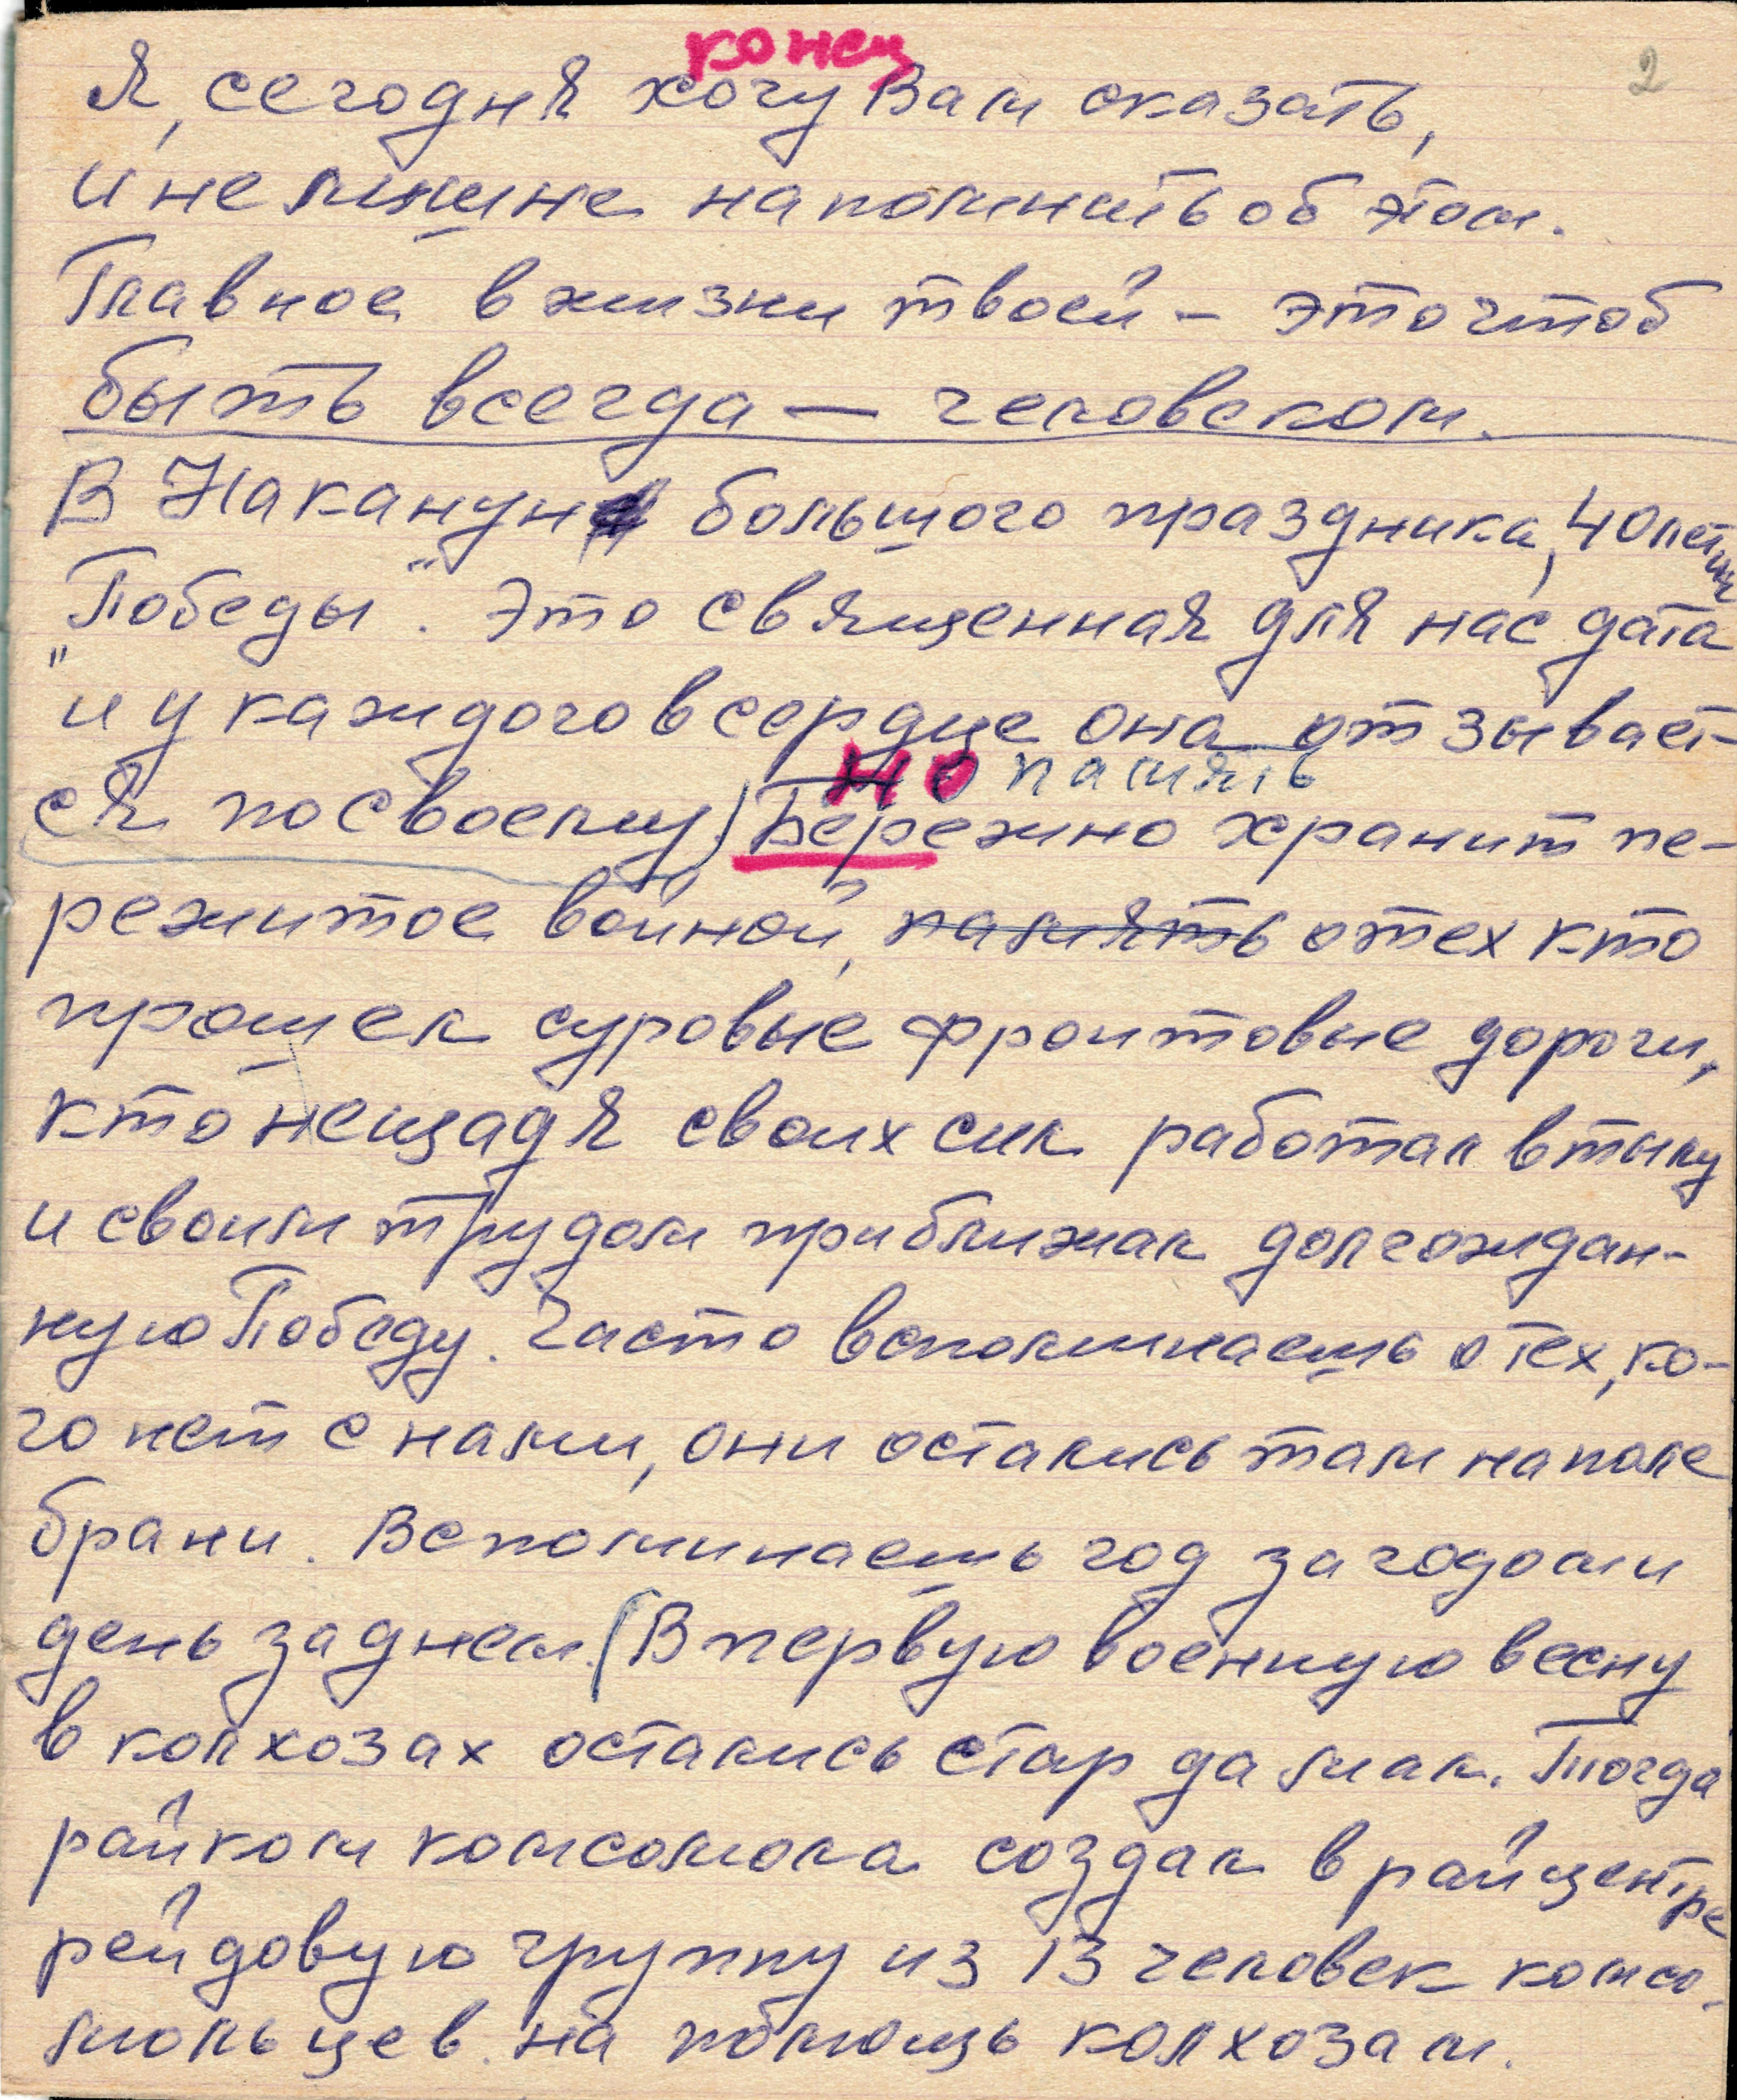 конец
2
Я, сегодня хочу Вам сказать,
и не лишне напомнить об этом.
Главное в жизни твоей – это чтоб
быть всегда — человеком.
В Накануне большого праздника, 40летия
"Победы". Это священная для нас дата
и у каждого в сердце она отзывает-
но память
ся посвоему) Бережно хранит пе-
режитое войной, память о тех кто
прошел суровые фронтовые дороги,
кто нещадя своих сил работал в тылу
и своим трудом приближал долгождан-
ную Победу. Часто вспоминаешь о тех, ко-
го нет с нами, они остались там на поле
брани. Вспоминаешь год за годом и
день за днем. (В первую военную весну
в колхозах остались стар да мал. Тогда
райком комсомола создал в райцентре
рейдовую группу из 13 человек комсо-
мольцев на помощь колхозам.